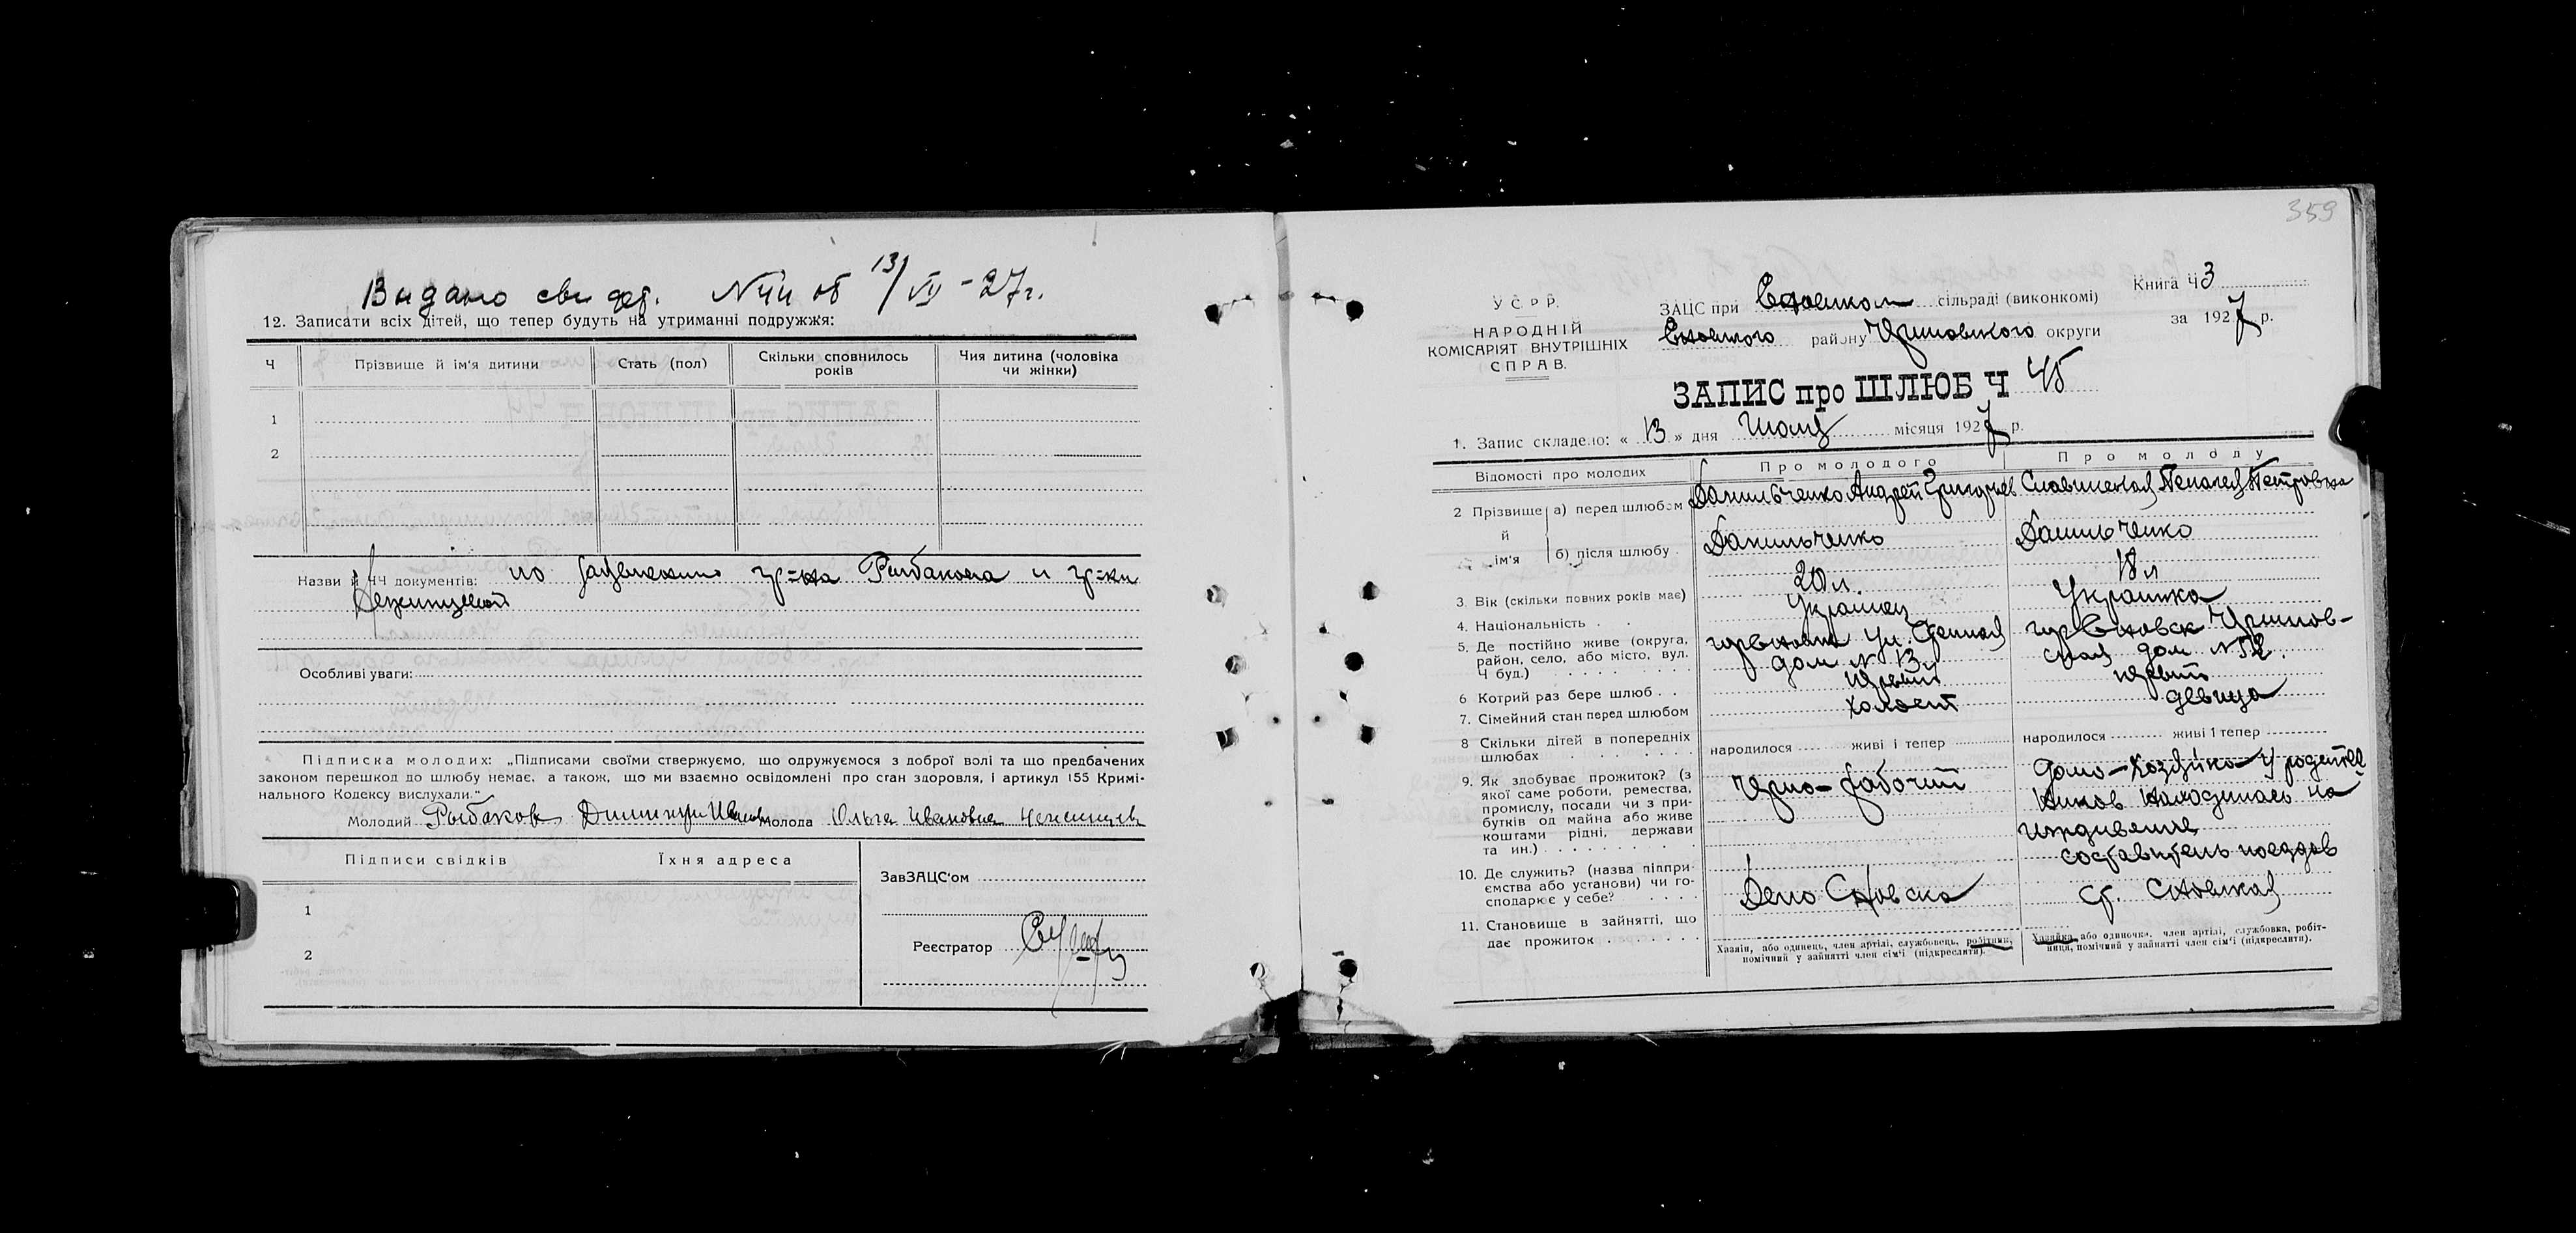 Видано свидет. №44 от 13/VII-27г.
12. Записати всіх дітей, що тепер будуть на утриманні подружжя:
Ч Прізвище й ім'я дитини Стать (пол) Скільки сповнилось років Чия дитина (чоловіка чи жінки)
1
2
Назви й ЧЧ документів: по заявлению гр=на Рыбакова и гр=ки
Особливі уваги:
Підписка молодих: „Підписами своїми стверджуємо, що одружуємося з доброї волі та що предбачених
законом перешкод до шлюбу немає, а також, що ми взаємно освідомлені про стан здоровля, і артикул 155 Кримі-
нального Кодексу вислухали."
Молодий Рыбаков Дмитри Иванов Молода Ольга Ивановна
Підписи свідків Їхня адреса
1
2
ЗавЗАЦС'ом
Реєстратор
359
У С Р Р.
НАРОДНІЙ
КОМІСАРІЯТ ВНУТРІШНІХ
СПРАВ.
ЗАЦС при Сновском сільраді (виконкомі)
Сновского району Черниговского округи
Книга Ч 3
за 1927 р.
ЗАПИС про ШЛЮБ Ч 45
1. Запис складено: « 13 » дня Июля місяця 1927 р.
Відомості про молодих Про молодого Про молоду
2 Прізвище й ім'я
а) перед шлюбом Данильченко Андрей Григорьев Славинская Пелагея Петровна
б) після шлюбу Данильченко Данильченко
3. Вік (скільки повних років має) 20 л. 18 л
4. Національність Украинец Украинка
5. Де постійно живе (округа, район, село, або місто, вул. Ч буд.)
дом № 13
гор Сновск Черниговская дом № 52.
6 Котрий раз бере шлюб первый первый
7. Сімейний стан перед шлюбом холост девица
8 Скільки дітей в попередніх шлюбах народилося живі і тепер народилося живі і тепер
9. Як здобуває прожиток? (з якої саме роботи, ремества, промислу, посади чи з прибутків од майна або живе коштами рідні, держави та ин.)
Черно-рабочий
Домо-Хозяйка У
находилась на
иждивении
10. Де служить? (назва підприємства або установи) чи господарює у себе?
Депо Сновска
составитель поездов
ст. Сновская
11. Становище в зайнятті, що дає прожиток
Хазяїн, або одинець, член артілі, службовець, робітник, помічний у зайнятті член сім'ї (підкреслити).
Хазяйка або одиночка, член артілі, службовка, робітниця, помічний у зайнятті член сім'ї (підкреслити).